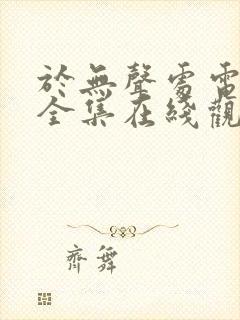 於無聲處電
全集在綫觀
齊舞